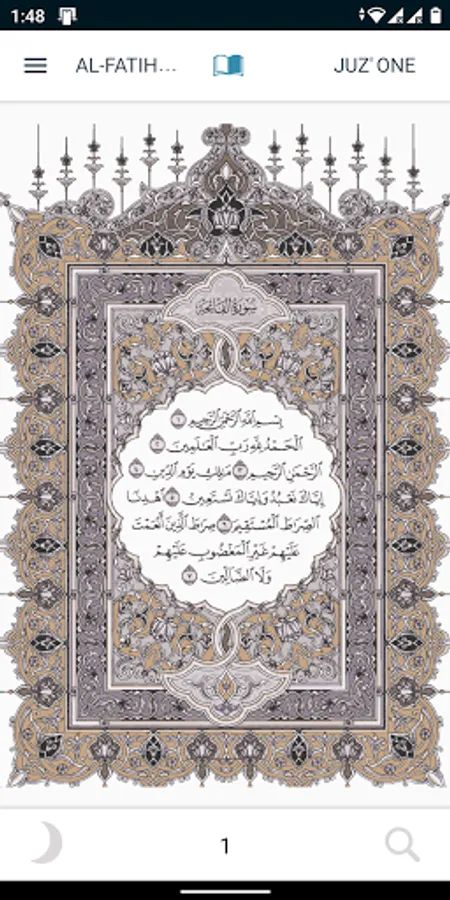 1:48
AL-FATIH...
JUZ' ONE
سورة الفاتحة
بِسْمِ ٱللَّهِ ٱلرَّحْمَٰنِ ٱلرَّحِيمِ ١
ٱلْحَمْدُ لِلَّهِ رَبِّ ٱلْعَٰلَمِينَ ٢
ٱلرَّحْمَٰنِ ٱلرَّحِيمِ ٣ مَٰلِكِ يَوْمِ ٱلدِّينِ ٤
إِيَّاكَ نَعْبُدُ وَإِيَّاكَ نَسْتَعِينُ ٥ ٱهْدِنَا
ٱلصِّرَٰطَ ٱلْمُسْتَقِيمَ ٦ صِرَٰطَ ٱلَّذِينَ أَنْعَمْتَ
عَلَيْهِمْ غَيْرِ ٱلْمَغْضُوبِ عَلَيْهِمْ
وَلَا ٱلضَّآلِّينَ ٧
1